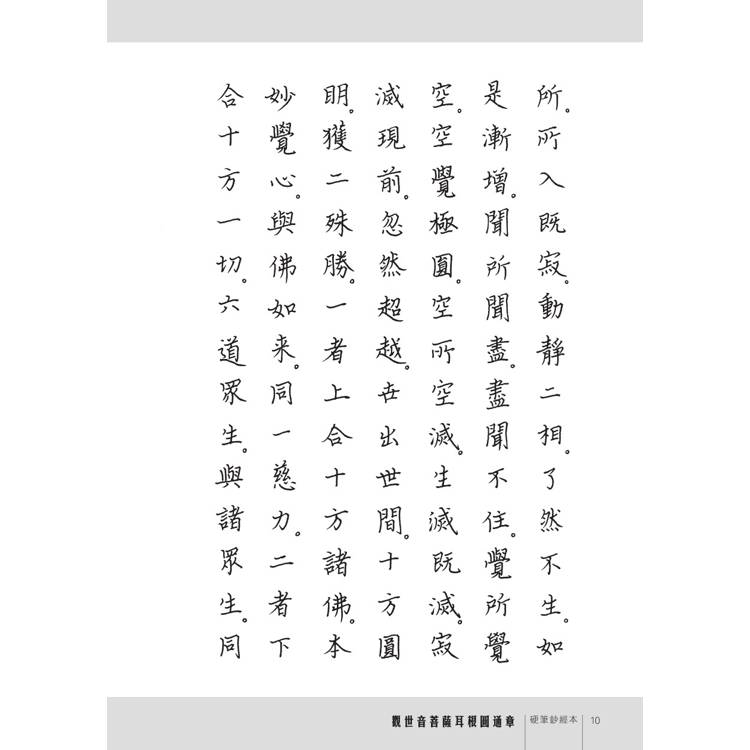 所。所入既寂。動靜二相。了然不生。如
是漸增。聞所聞盡。盡聞不住。覺所覺
空。空覺極圓。空所空滅。生滅既滅。寂
滅現前。忽然超越。世出世間。十方圓
明。獲二殊勝。一者上合十方諸佛。本
妙覺心。與佛如来。同一慈力。二者下
合十方一切。六道眾生。與諸眾生。同
觀世音菩薩耳根圓通章 硬筆鈔經本 10